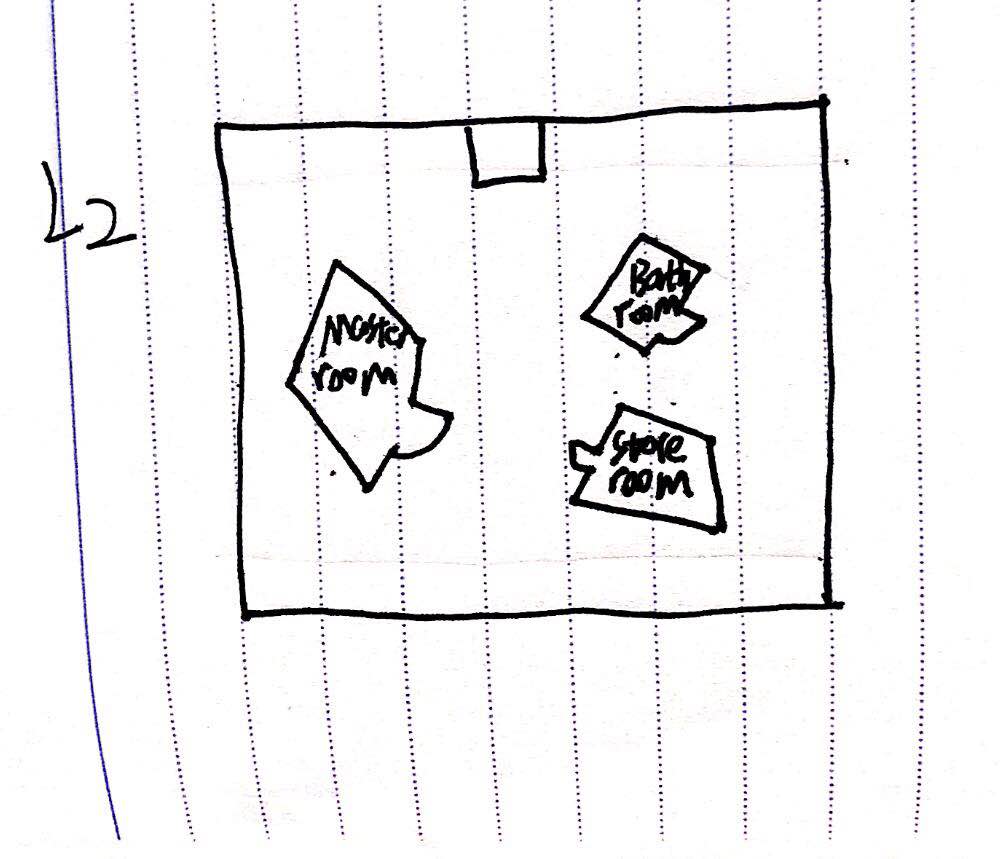 L2
Master
room
Bath
room
Store
room